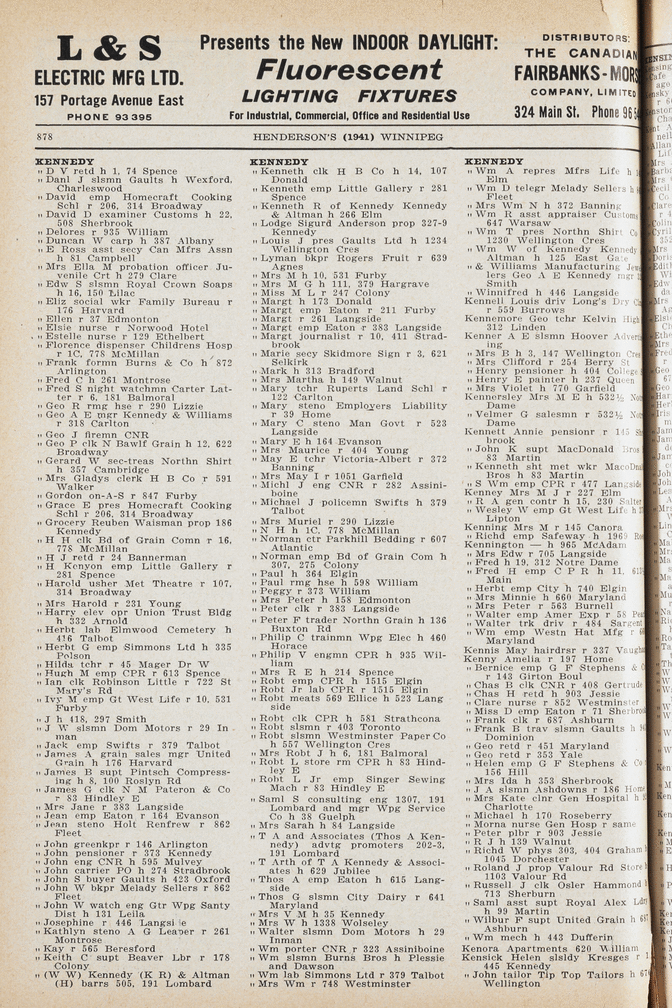 L & S
ELECTRIC MFG LTD.
157 Portage Avenue East
PHONE 93 395
Presents the New INDOOR DAYLIGHT:
Fluorescent
LIGHTING FIXTURES
For Industrial, Commercial, Office and Residential Use
DISTRIBUTORS:
THE CANADIAN
FAIRBANKS-MORS
COMPANY, LIMITED
324 Main St. Phone 96
878
HENDERSON'S (1941) WINNIPEG
KENNEDY
" D V retd h 1, 74 Spence
" Danl J slsmn Gaults h Wexford,
Charleswood
" David emp Homecraft Cooking
Schl r 206, 314 Broadway
" David D examiner Customs h 22,
508 Sherbrook
" Delores r 935 William
" Duncan W carp h 387 Albany
" E Ross asst secy Can Mfrs Assn
h 81 Campbell
" Mrs Ella M probation officer Ju-
venile Crt h 279 Clare
" Edw S slsmn Royal Crown Soaps
h 16, 150 Lilac
" Eliz social wkr Family Bureau r
176 Harvard
" Ellen r 37 Edmonton
" Elsie nurse r Norwood Hotel
" Estelle nurse r 129 Ethelbert
" Florence dispenser Childrens Hosp
r 1C, 778 McMillan
" Frank formn Burns & Co h 872
Arlington
" Fred C h 261 Montrose
" Fred S night watchmn Carter Lat-
ter r 6, 181 Balmoral
" Geo R rmg hse r 290 Lizzie
" Geo A E mgr Kennedy & Williams
r 318 Carlton
" Geo J firemn CNR
" Geo P clk N Bawlf Grain h 12, 622
Broadway
" Gerard W sec-treas Northn Shirt
h 357 Cambridge
" Mrs Gladys clerk H B Co r 591
Walker
" Gordon on-A-S r 847 Furby
" Grace E pres Homecraft Cooking
Schl r 206, 314 Broadway
" Grocery Reuben Waisman prop 186
Kennedy
" H H clk Bd of Grain Comn r 16,
778 McMillan
" H J retd r 24 Bannerman
" H Kenyon emp Little Gallery r
281 Spence
" Harold usher Met Theatre r 107,
314 Broadway
" Mrs Harold r 231 Young
" Harry elev opr Union Trust Bldg
h 332 Arnold
" Herbt lab Elmwood Cemetery h
416 Talbot
" Herbt G emp Simmons Ltd h 335
Polson
" Hilda tchr r 45 Mager Dr W
" Hugh M emp CPR r 613 Spence
" Ian clk Robinson Little r 722 St
Mary's Rd
" Ivy M emp Gt West Life r 10, 531
Furby
" J h 418, 297 Smith
" J W slsmn Dom Motors r 29 In
man
" Jack emp Swifts r 379 Talbot
" James A grain sales mgr United
Grain h 176 Harvard
" James B supt Pintsch Compress-
ing h 8, 100 Roslyn Rd
" James G clk N M Pateron & Co
r 83 Hindley E
" Mrs Jane r 383 Langside
" Jean emp Eaton r 164 Evanson
" Jean steno Holt Renfrew r 862
Fleet
" John greenkpr r 146 Arlington
" John pensioner r 373 Kennedy
" John eng CNR h 595 Mulvey
" John carrier PO h 274 Stradbrook
" John S buyer Gaults h 423 Oxford
" John W bkpr Melady Sellers r 862
Fleet
" John W watch eng Gtr Wpg Santy
Dist h 131 Leila
" Josephine r 446 Langsi e
" Kathlyn steno A G Leaper r 261
Montrose
" Kay r 565 Beresford
" Keith C supt Beaver Lbr r 178
Colony
" (W W) Kennedy (K R) & Altman
(H) barrs 505, 191 Lombard
KENNEDY
" Kenneth clk H B Co h 14, 107
Donald
" Kenneth emp Little Gallery r 281
Spence
" Kenneth R of Kennedy Kennedy
& Altman h 266 Elm
" Lodge Sigurd Anderson prop 327-9
Kennedy
" Louis J pres Gaults Ltd h 1234
Wellington Cres
" Lyman bkpr Rogers Fruit r 639
Agnes
" Mrs M h 10, 531 Furby
" Mrs M G h 111, 379 Hargrave
" Miss M L r 247 Colony
" Margt h 173 Donald
" Margt emp Eaton r 211 Furby
" Margt r 261 Langside
" Margt emp Eaton r 383 Langside
" Margt journalist r 10, 411 Strad-
brook
" Marie secy Skidmore Sign r 3, 621
Selkirk
" Mark h 313 Bradford
" Mrs Martha h 149 Walnut
" Mary tchr Ruperts Land Schl r
122 Carlton
" Mary steno Employers Liability
r 39 Home
" Mary C steno Man Govt r 523
Langside
" Mary E h 164 Evanson
" Mrs Maurice r 404 Young
" May E tchr Victoria-Albert r 372
Banning
" Mrs May I r 1051 Garfield
" Michl J eng CNR h 282 Assini-
boine
" Michael J policemn Swifts h 379
Talbot
" Mrs Muriel r 290 Lizzie
" N H h 1C, 778 McMillan
" Norman ctr Parkhill Bedding r 607
Atlantic
" Norman emp Bd of Grain Com h
307, 275 Colony
" Paul h 364 Elgin
" Paul rmg hse h 598 William
" Peggy r 373 William
" Mrs Peter h 158 Edmonton
" Peter clk r 383 Langside
" Peter F trader Northn Grain h 136
Buxton Rd
" Philip C trainmn Wpg Elec h 460
Horace
" Philip V engmn CPR h 935 Wil-
liam
" Mrs R E h 214 Spence
" Robt emp CPR h 1515 Elgin
" Robt Jr lab CPR r 1515 Elgin
" Robt meats 569 Ellice h 523 Lang
side
" Robt clk CPR h 581 Strathcona
" Robt slsmn r 403 Toronto
" Robt slsmn Westminster Paper Co
h 557 Wellington Cres
" Mrs Robt J h 6, 181 Balmoral
" Robt L store rm CPR h 83 Hind-
ley E
" Robt L Jr emp Singer Sewing
Mach r 83 Hindley E
" Saml S consulting eng 1307, 191
Lombard and mgr Wpg Service
Co h 38 Guelph
" Mrs Sarah h 84 Langside
" T A and Associates (Thos A Ken-
nedy) advtg promoters 202-3,
191 Lombard
" T Arth of T A Kennedy & Associ-
ates h 629 Jubilee
" Thos A emp Eaton h 615 Lang-
side
" Thos G slsmn City Dairy r 641
Maryland
" Mrs V M h 35 Kennedy
" Mrs W h 1338 Wolseley
" Walter slsmn Dom Motors h 29
Inman
" Wm porter CNR r 323 Assiniboine
" Wm slsmn Burns Bros h Plessie
and Dawson
" Wm lab Simmons Ltd r 379 Talbot
" Mrs Wm r 748 Westminster
KENNEDY
" Wm A repres Mfrs Life h
Elm
" Wm D telegr Melady Sellers h
Fleet
" Mrs Wm N h 372 Banning
" Wm R asst appraiser Customs
647 Warsaw
" Wm T pres Northn Shirt Co
1230 Wellington Cres
" Wm W of Kennedy Kennedy
Altman h 125 East Gate
" & Williams Manufacturing Jew
lers Geo A E Kennedy mgr
Smith
" Winnifred h 446 Langside
Kennell Louis driv Long's Dry
r 559 Burrows
Kennemore Geo tchr Kelvin High
312 Linden
Kenner A E slsmn Hoover Adver
ing
" Mrs B h 3, 147 Wellington Cres
" Mrs Clifford r 254 Berry St
" H pensioner h 404 College
" Henry E painter h 237 Queen
" Mrs Violet h 770 Garfield
Kennersley Mrs M E h 532½ Not
Dame
" Velmer G salesmn r 532½ Not
Dame
Kennett Annie pensionr r 145 Sh
brook
" John K supt MacDonald Bros
83 Martin
" Kenneth sht met wkr MacoDna
Bros h 83 Martin
" S Wm emp CPR r 477 Langside
Kenney Mrs M J r 227 Elm
" R A gen contr h 15, 230 Salter
" Wesley W emp Gt West Life h
Lipton
Kenning Mrs M r 145 Canora
" Richd emp Safeway h 1969 Ros
Kennington — h 965 McAdam
" Mrs Edw r 705 Langside
" Fred h 19, 312 Notre Dame
" Fred H emp C P R h 11, 61
Main
" Herbt emp City h 740 Elgin
" Mrs Minnie h 660 Maryland
" Mrs Peter r 563 Burnell
" Walter emp Amer Exp r 58 Pea
" Walter trk driv r 484 Sargent
" Wm emp Westn Hat Mfg r
Maryland
Kennis May hairdrsr r 337 Vaugh
Kenny Amelia r 197 Home
" Bernice emp G F Stephens &
r 143 Girton Boul
" Chas B clk CNR r 408 Gertrude
" Chas H retd h 903 Jessie
" Clare nurse r 852 Westminster
" Miss D emp Eaton r 71 Sherbroo
" Frank clk r 687 Ashburn
" Frank B trav slsmn Gaults h
Dominion
" Geo retd r 451 Maryland
" Geo retd r 353 Yale
" Helen emp G F Stephens & Co
156 Hill
" Mrs Ida h 353 Sherbrook
" J A slsmn Ashdowns r 186 Home
" Mrs Kate clnr Gen Hospital h
Charlotte
" Michael h 170 Roseberry
" Morna nurse Gen Hosp r same
" Peter plbr r 903 Jessie
" R J h 139 Walnut
" Richd W phys 303, 404 Graham
1045 Dorchester
" Roland J prop Valour Rd Store
1103 Valour Rd
" Russell J clk Osler Hammond
713 Sherburn
" Saml asst supt Royal Alex Ldry
h 99 Martin
" Wilbur F supt United Grain h 687
Ashburn
" Wm mech h 443 Dufferin
Kenora Apartments 620 William
Kensick Helen slsldy Kresges r
445 Kennedy
" John tailor Tip Top Tailors h 67
Wellington